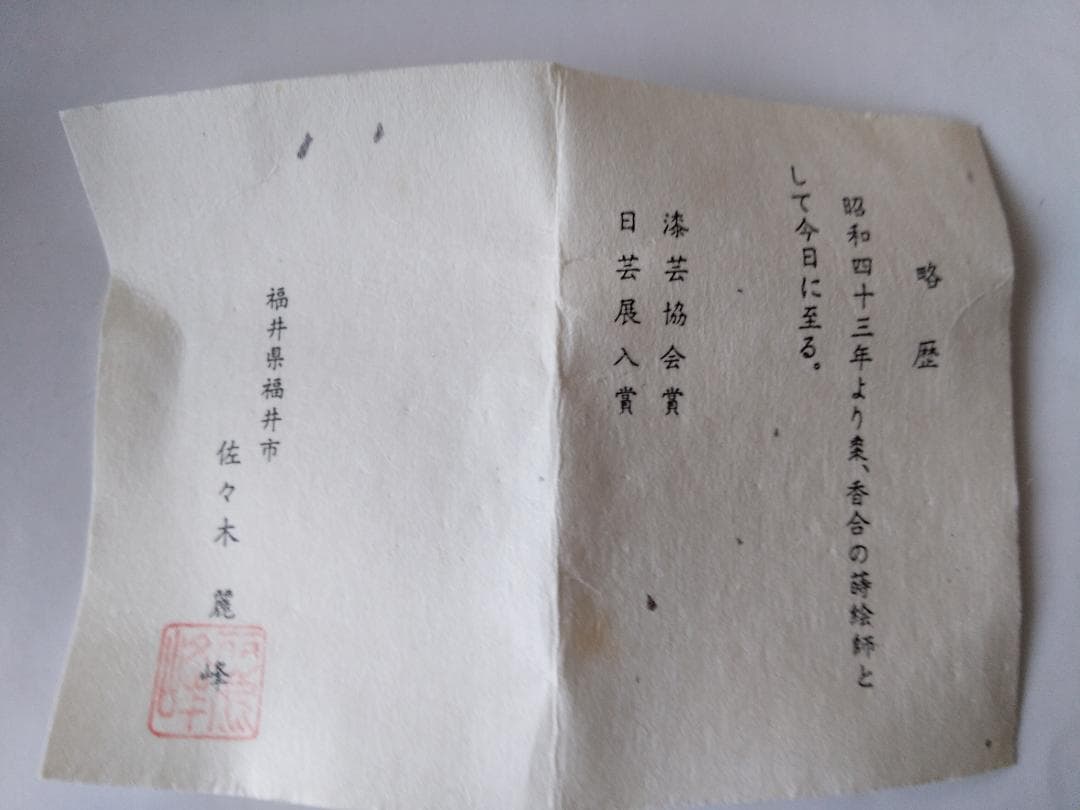 略歴
昭和四十三年より棗、香合の蒔絵師と
して今日に至る。
漆芸協会賞
日芸展入賞
福井県福井市
佐々木麗峰